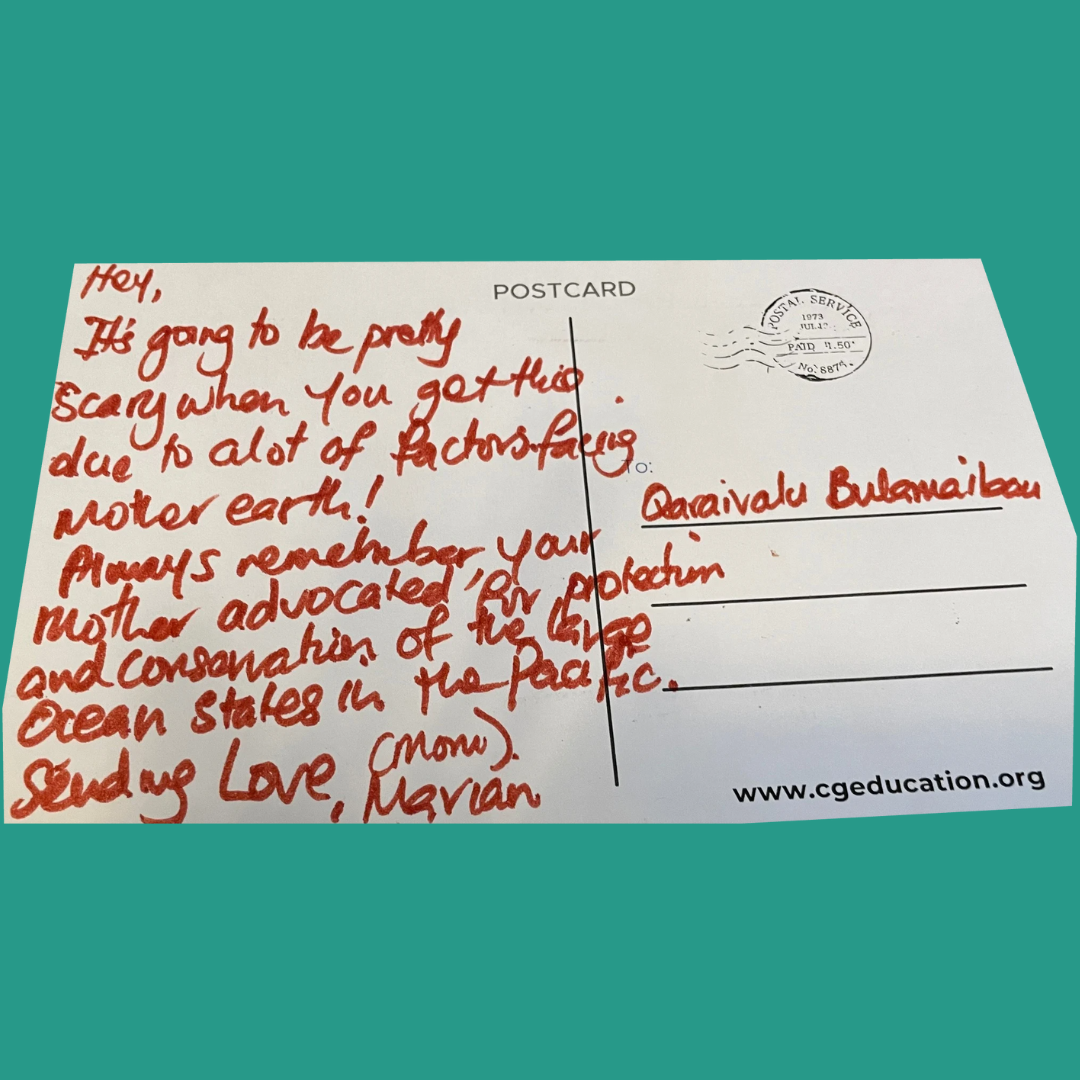 Hey,
It's going to be pretty
scary when you get this
due to alot of factors facing
Mother earth!
Always remember, your
mother advocated for protection
and conservation of the large
Ocean States in the Pacific.
Sending Love, (Mom).
Marian
POSTCARD
POSTAL SERVICE
1973
JUL
PAID
No.
To:
Qaraivalu Bulamaibau
www.cgeducation.org